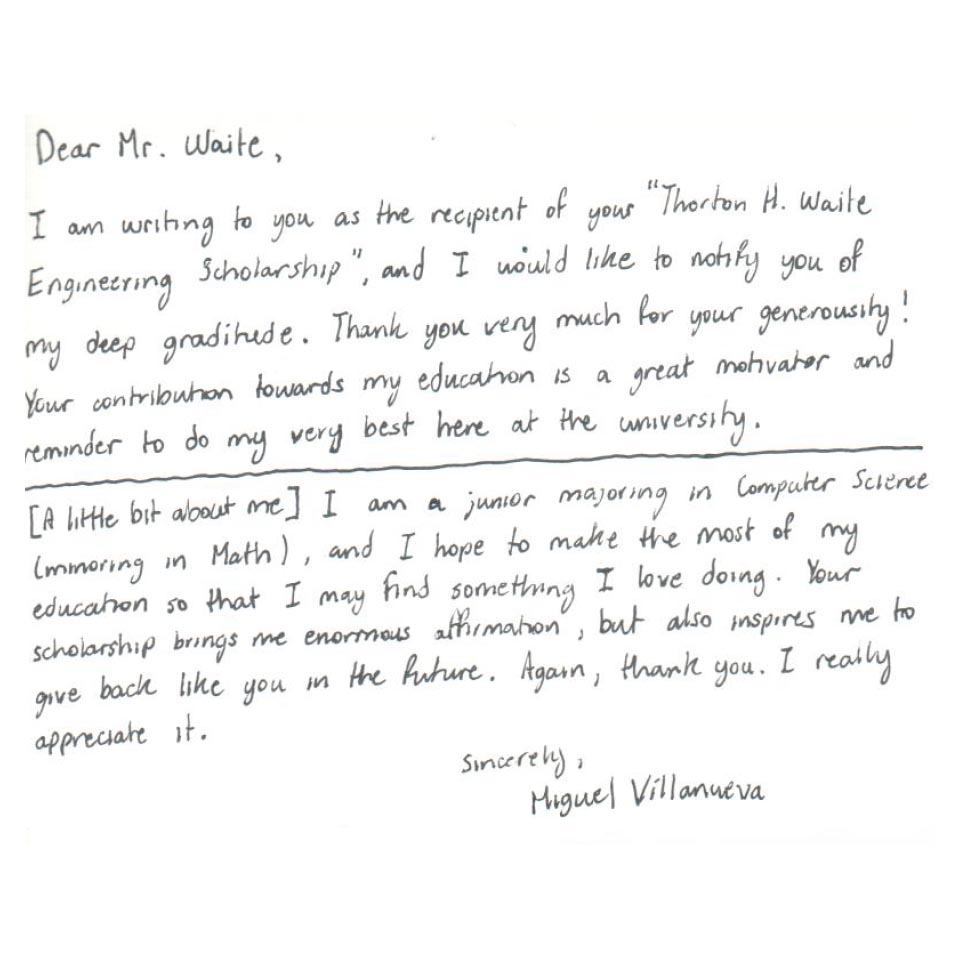 Dear Mr. Waite,
I am writing to you as the recipient of your "Thorton H. Waite
Engineering Scholarship", and I would like to notify you of
my deep gradithude. Thank you very much for your generousity!
Your contribution towards my education is a great motivator and
reminder to do my very best here at the university.
[A little bit about me] I am a junior majoring in Computer Science
(minoring in Math), and I hope to make the most of my
education so that I may find something I love doing. Your
scholarship brings me enormous affirmation, but also inspires me to
give back like you in the future. Again, thank you. I really
appreciate it.
Sincerely,
Miguel Villanueva